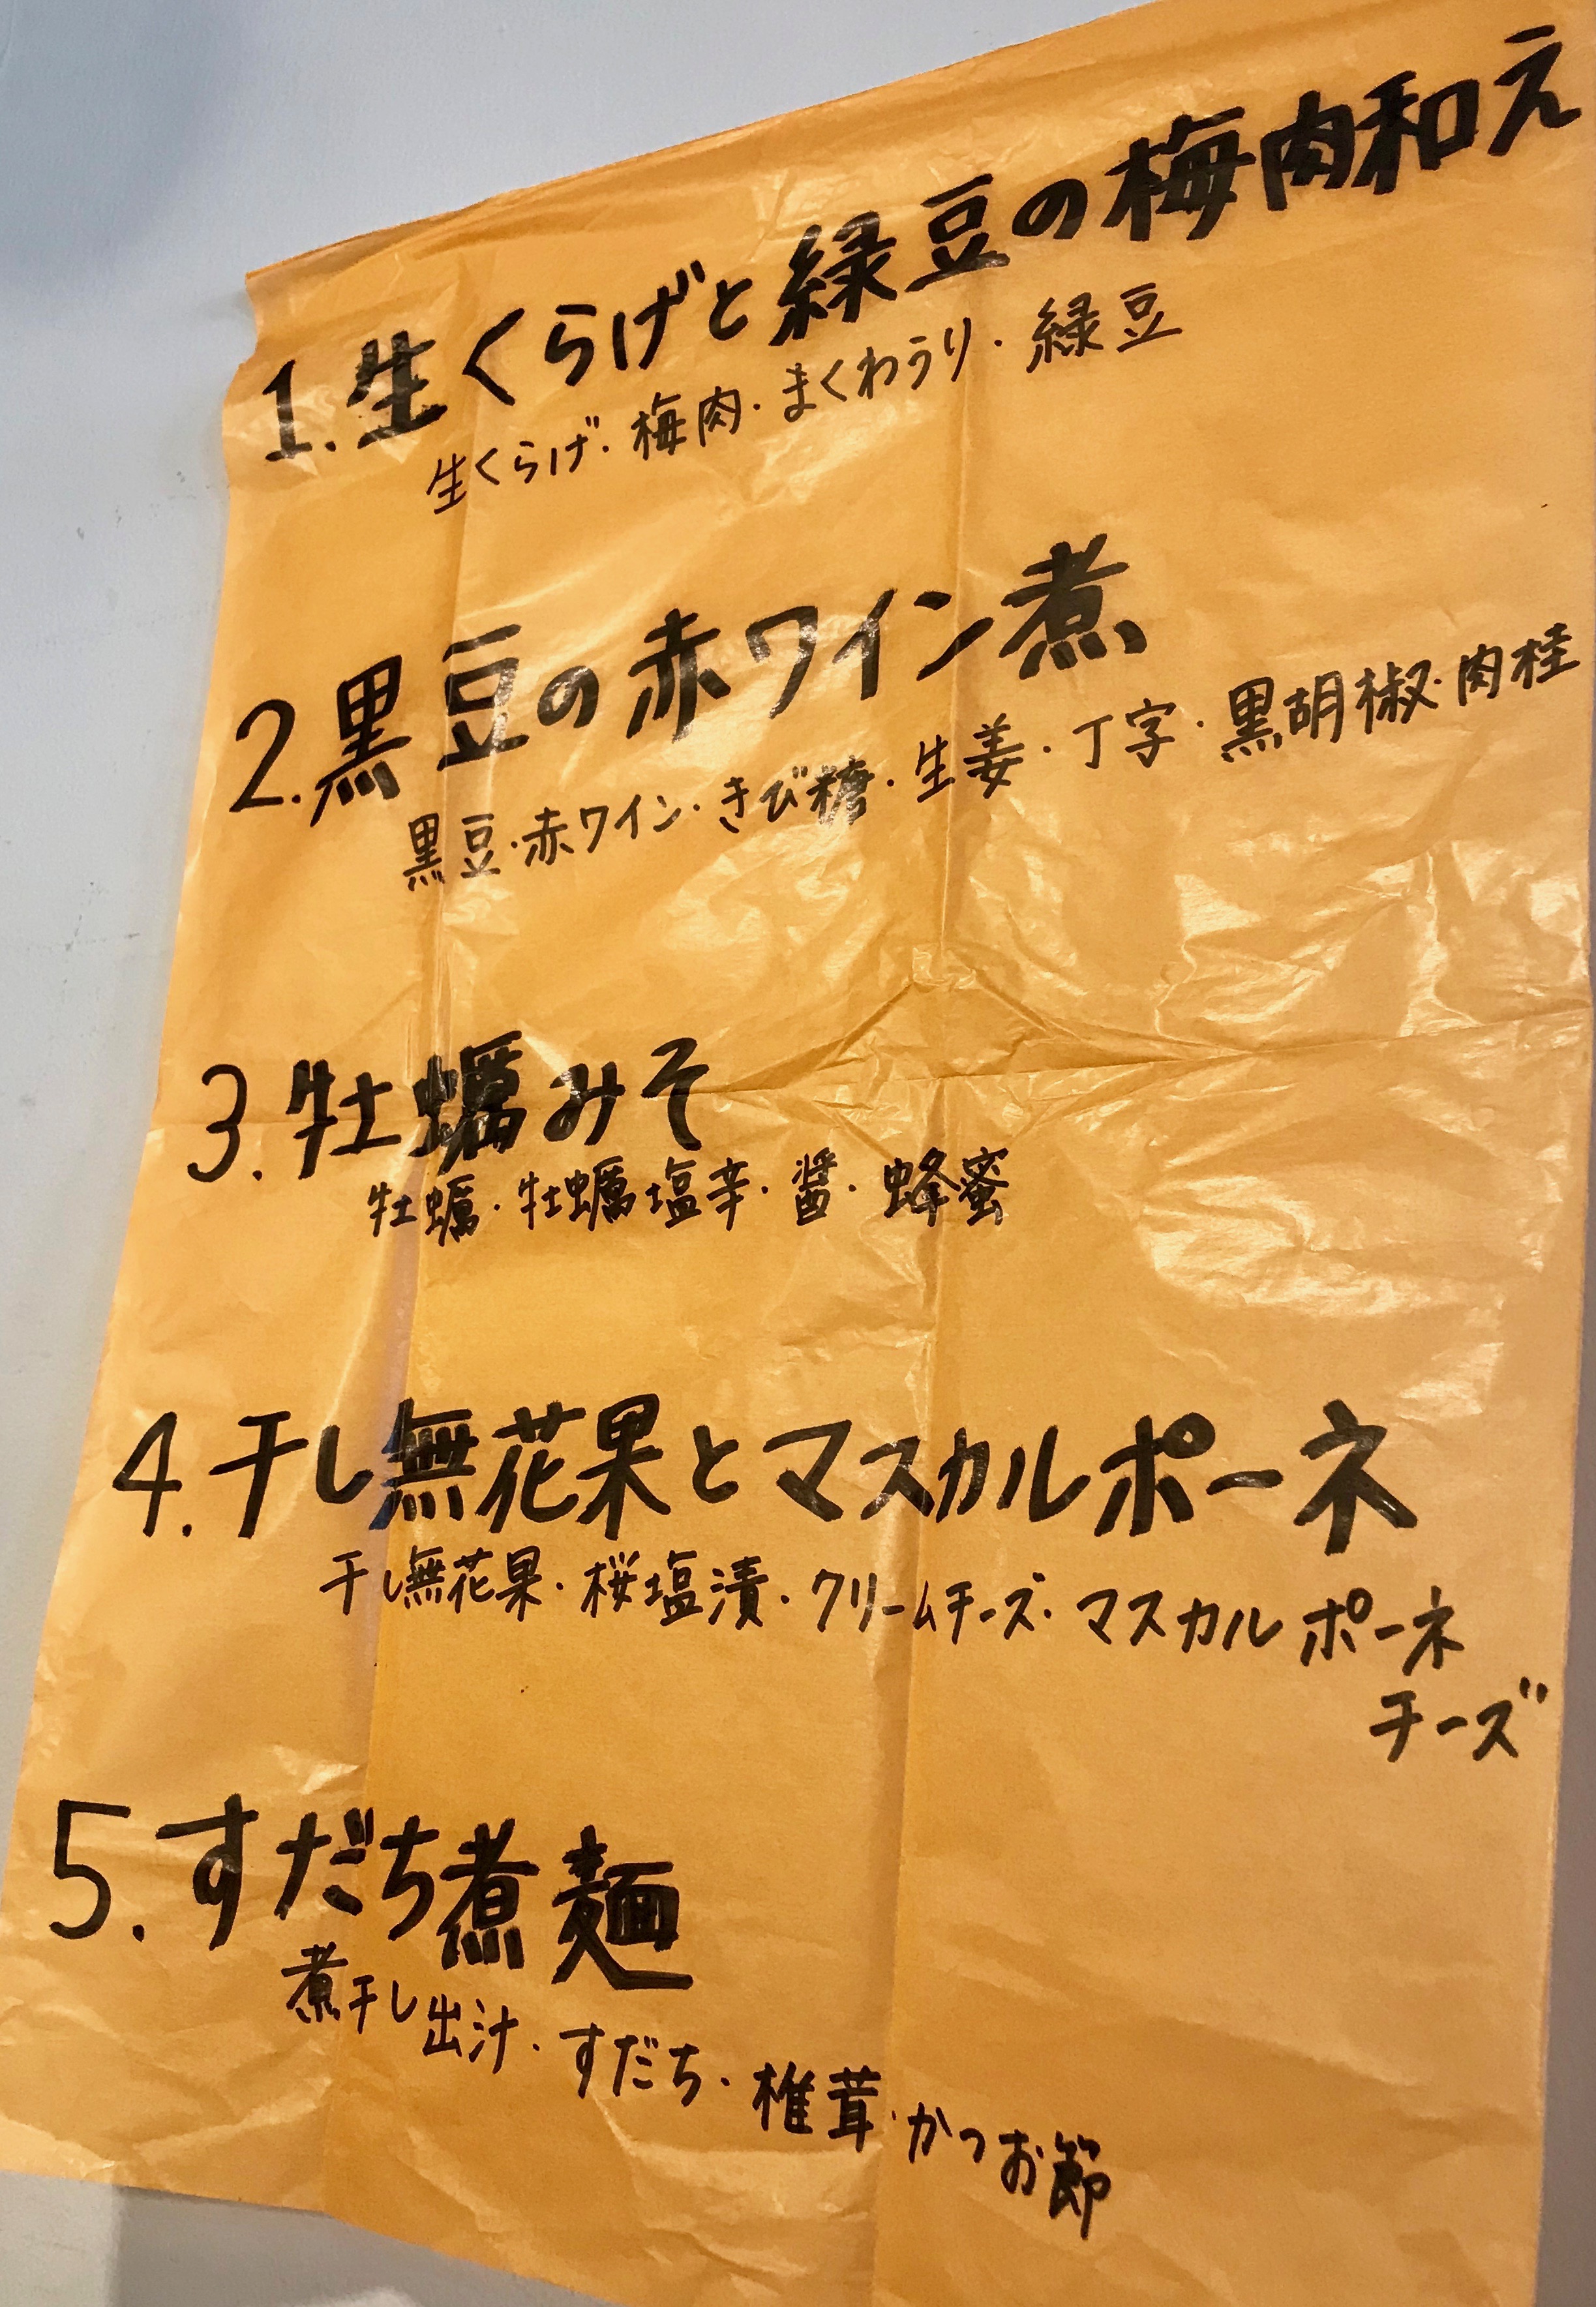 1.生くらげと緑豆の梅肉和え
生くらげ・梅肉・まくわうり・緑豆
2.黒豆の赤ワイン煮
黒豆・赤ワイン・きび糖・生姜・丁字・黒胡椒・肉桂
3.牡蠣みそ
牡蠣・牡蠣塩辛・醤・蜂蜜
4.干し無花果とマスカルポーネ
干し無花果・桜塩漬・クリームチーズ・マスカルポーネ
チーズ
5.すだち煮麺
煮干し出汁・すだち・椎茸・かつお節